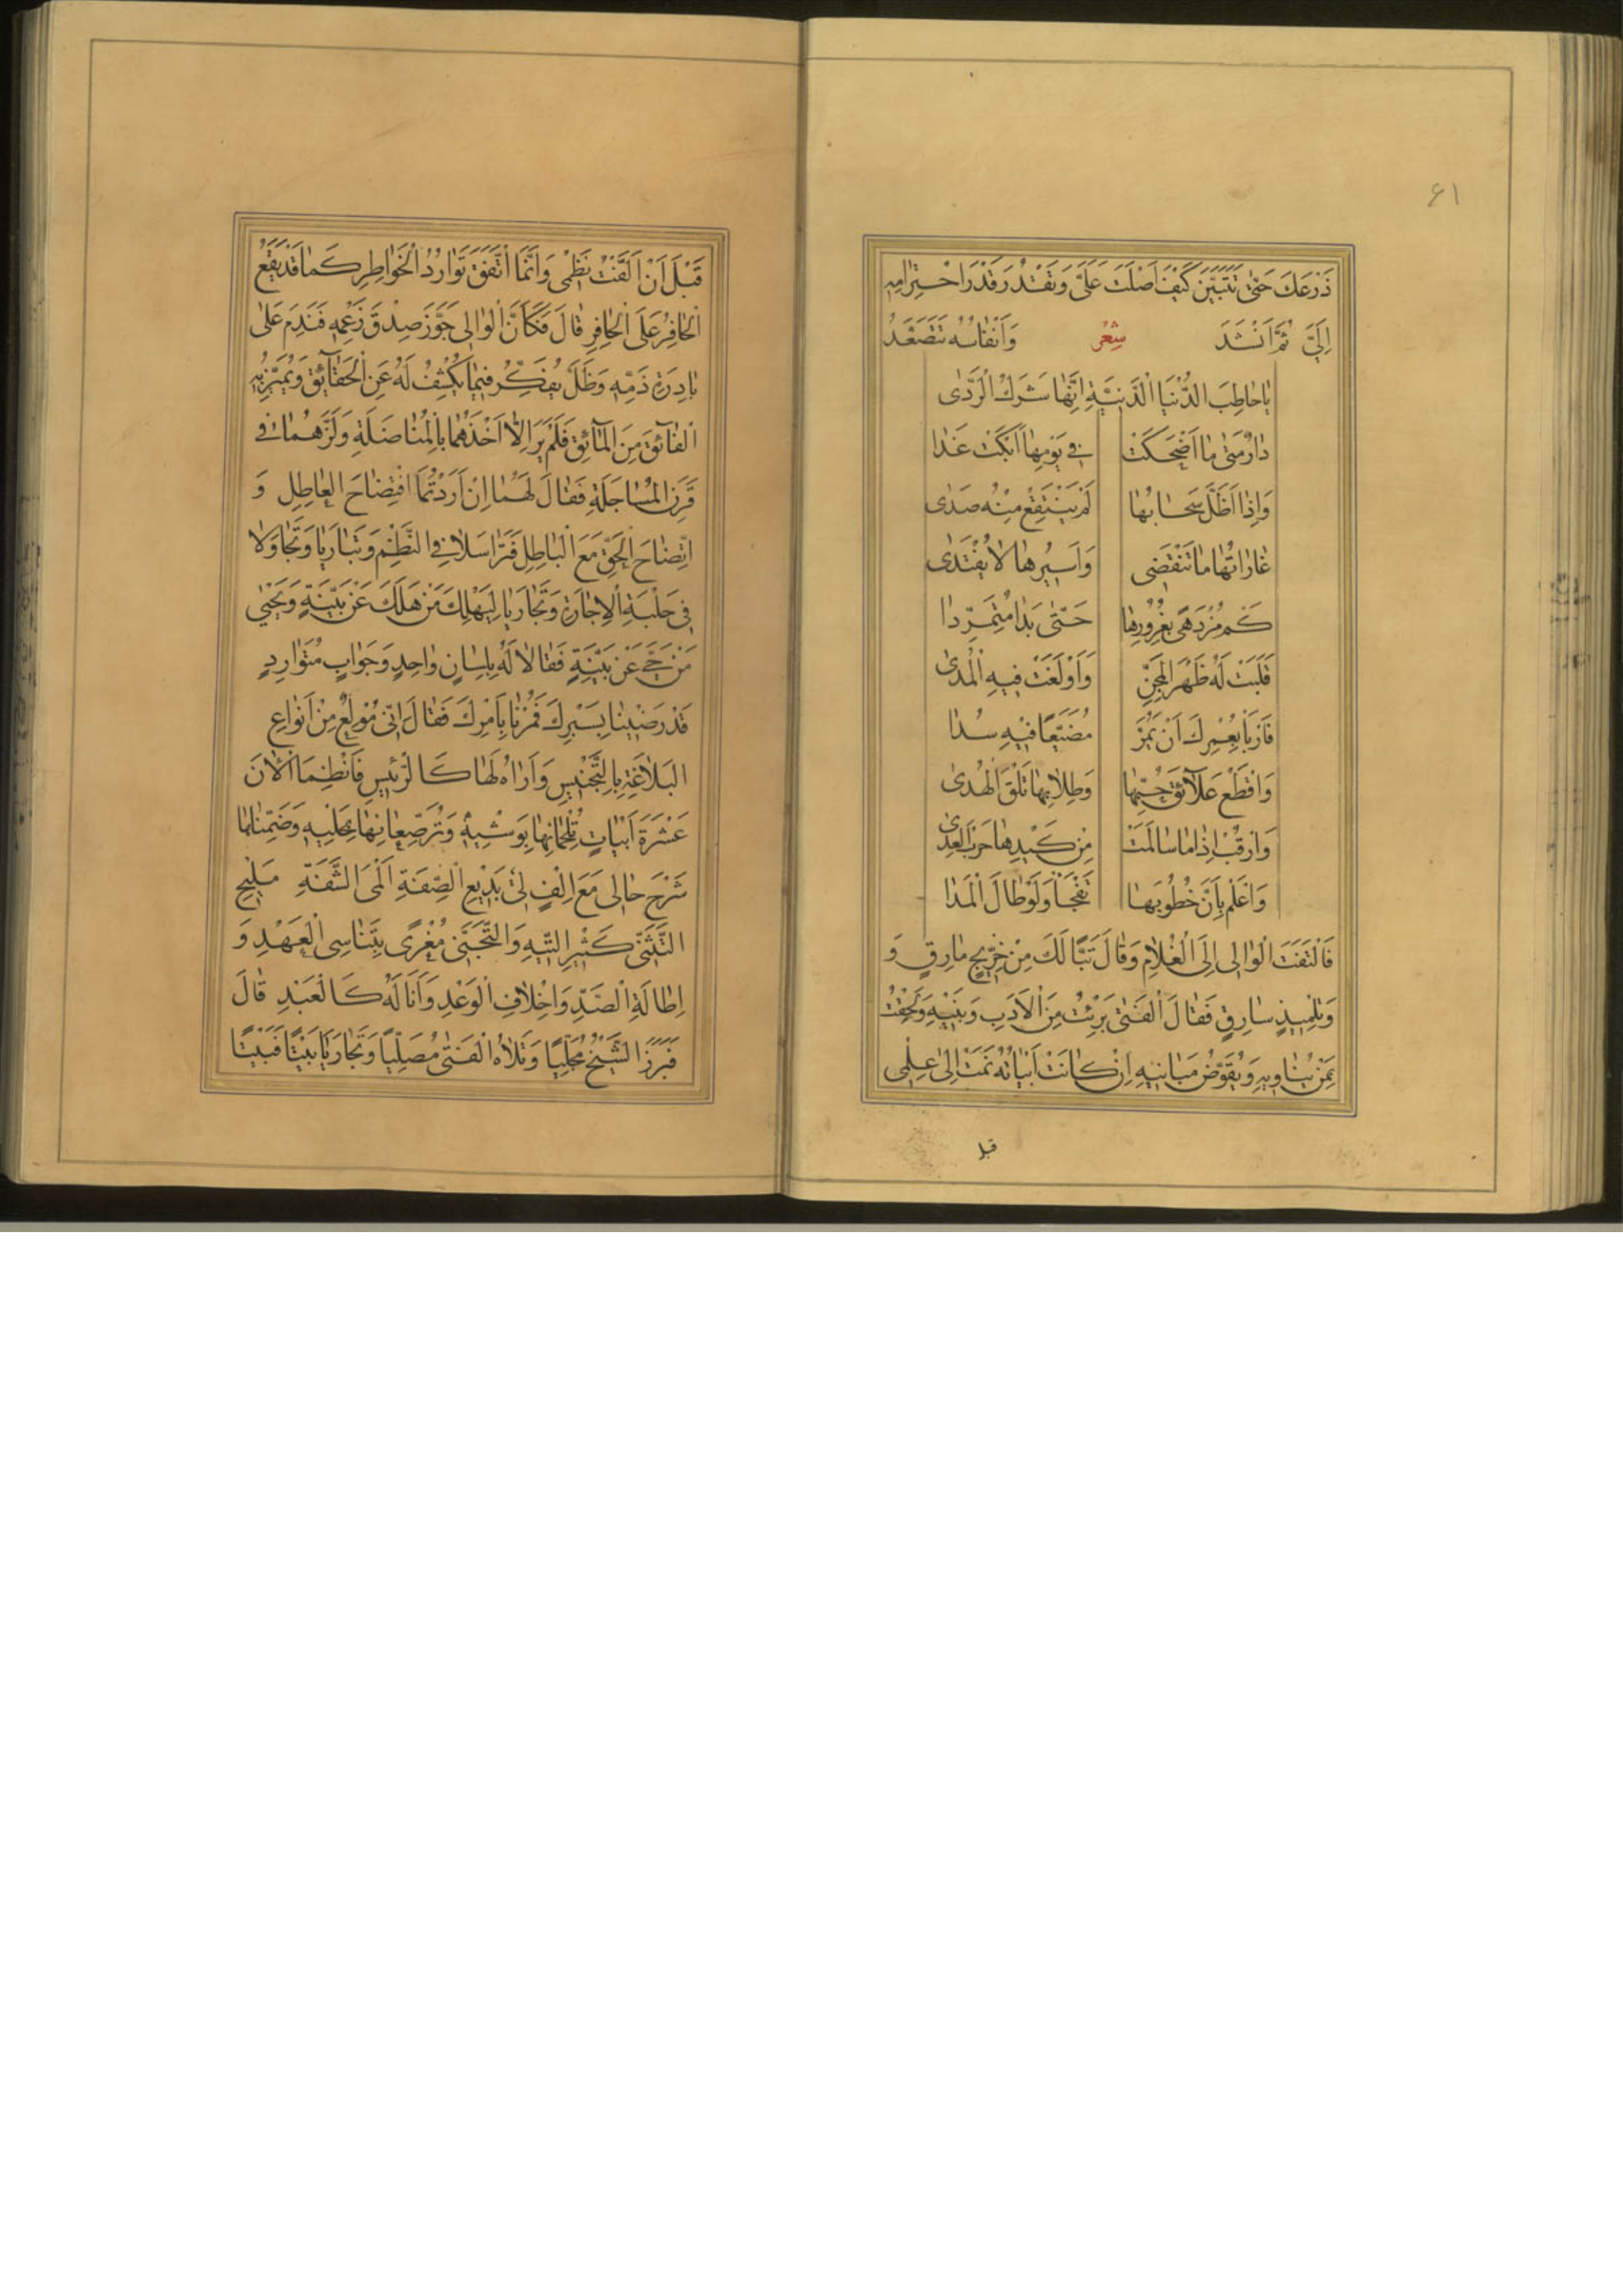 ٤١
ذَرْعَكَ حَتّٰى تَتَبَيَّنَ كَيْفَ اَصْلَتَ عَلَيَّ وَتَقْدُرَ قَدْرَ اجْتِرَامِهِ
اِلَيَّ ثُمَّ اَنْشَدَ شِعْر وَاَنْفَاسُهُ تَتَصَعَّدُ
يَا خَاطِبَ الدُّنْيَا الدَّنِيَّةِ اِنَّهَا شَرَكُ الرَّدٰى
دَارٌ مَتٰى مَا اَضْحَكَتْ فِي يَوْمِهَا اَبْكَتْ غَدَا
وَاِذَا اَظَلَّ سَحَابُهَا لَمْ يَنْتَقِعْ مِنْهُ صَدٰى
غَارَاتُهَا مَا تَنْقَضِى وَاَسِيرُهَا لَا يُفْتَدٰى
كَمْ مُزْدَهًى بِغُرُورِهَا حَتّٰى بَدَا مُتَمَرِّدَا
قَلَبَتْ لَهُ ظَهْرَ الْمِجَنِّ وَاَوْلَغَتْ فِيهِ الْمُدٰى
فَارْبَأْ بِعُمْرِكَ اَنْ يَمُرَّ مُضَيَّعًا فِيهِ سُدَا
وَاقْطَعْ عَلَآئِقَ حُبِّهَا وَطِلَابِهَا تَلْقَ الْهُدٰى
وَارْقُبْ اِذَا مَا سَالَمَتْ مِنْ كَيْدِهَا حَرْبَ الْعِدٰى
وَاعْلَمْ بِاَنَّ خُطُوبَهَا تَفْجَأُ وَلَوْ طَالَ الْمَدَا
فَالْتَفَتَ الْوَالِى اِلَى الْغُلَامِ وَقَالَ تَبًّا لَكَ مِنْ خِرِّيجٍ مَارِقٍ وَ
وَتِلْمِيذٍ سَارِقٍ فَقَالَ الْفَتٰى بَرِئْتُ مِنَ الْاَدَبِ وَبَنِيهِ وَلَحِقْتُ
بِمَنْ يُنَاوِيهِ وَيُقَوِّضُ مَبَانِيهِ اِنْ كَانَتْ اَبْيَاتُهُ نَمَتْ اِلٰى عِلْمِى
قبل
قَبْلَ اَنْ اَلَّفْتُ نَظْمِى وَاِنَّمَا اتَّفَقَ تَوَارُدُ الْخَوَاطِرِ كَمَا قَدْ يَقَعُ
الْحَافِرُ عَلَى الْحَافِرِ قَالَ فَكَاَنَّ الْوَالِى جَوَّزَ صِدْقَ زَعْمِهِ فَنَدِمَ عَلٰى
بَادِرَةِ ذَمِّهِ وَظَلَّ يُفَكِّرُ فِيمَا يَكْشِفُ لَهُ عَنِ الْحَقَآئِقِ وَيُمَيِّزُ بِهِ
الْفَآئِقَ مِنَ الْمَآئِقِ فَلَمْ يَرَ اِلَّا اَخْذَهُمَا بِالْمُنَاضَلَةِ وَلَزَّهُمَا فِى
قَرَنِ الْمُسَاجَلَةِ فَقَالَ لَهُمَا اِنْ اَرَدْتُمَا افْتِضَاحَ الْعَاطِلِ وَ
اتِّضَاحَ الْحَقِّ مَعَ الْبَاطِلِ فَتَرَاسَلَا فِى النَّظْمِ وَتَبَارَيَا وَتَجَاوَلَا
فِى حَلْبَةِ الْاِجَازَةِ وَتَجَارَيَا لِيَهْلِكَ مَنْ هَلَكَ عَنْ بَيِّنَةٍ وَيَحْيٰى
مَنْ حَيَّ عَنْ بَيِّنَةٍ فَقَالَا لَهُ بِلِسَانٍ وَاحِدٍ وَجَوَابٍ مُتَوَارِدٍ
قَدْ رَضِينَا بِسَبْرِكَ فَمُرْنَا بِاَمْرِكَ فَقَالَ اِنِّى مُولَعٌ مِنْ اَنْوَاعِ
الْبَلَاغَةِ بِالتَّجْنِيسِ وَاَرَاهُ لَهَا كَالرَّئِيسِ فَانْظِمَا الْاٰنَ
عَشْرَةَ اَبْيَاتٍ تُلْحِمَانِهَا بِوَشْيِهِ وَتُرَصِّعَانِهَا بِحَلْيِهِ وَضَمِّنَاهَا
شَرْحَ حَالِى مَعَ اِلْفٍ لِى بَدِيعِ الصِّفَةِ اَلْمَى الشَّفَةِ مَلِيحِ
التَّثَنِّى كَثِيرِ التِّيهِ وَالتَّجَنِّى مُغْرًى بِتَنَاسِى الْعَهْدِ وَ
اِطَالَةِ الصَّدِّ وَاِخْلَافِ الْوَعْدِ وَاَنَا لَهُ كَالْعَبْدِ قَالَ
فَبَرَزَ الشَّيْخُ مُجَلِّيًا وَتَلَاهُ الْفَتٰى مُصَلِّيًا وَتَجَارَيَا بَيْتًا فَبَيْتًا